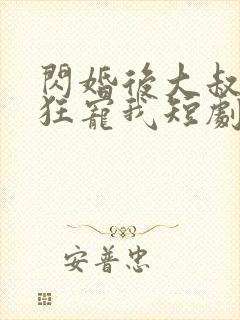 閃婚後大叔
狂寵我短劇
安普忠